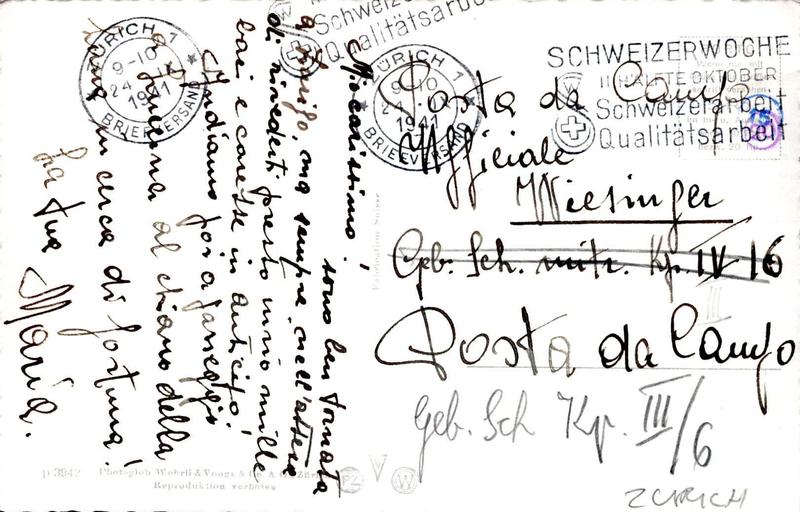 Micarissimo! sono ben tornata
a Zurigo, ma sempre nell'attesa
di rivederti presto invio mille
baci e carezze in anticipo!
Andiamo poi a passeggio
a Lucerna al chiaro della
luna in cerca di fortuna!
La tua
Maria.
ZÜRICH 1
9-10
24
1941
BRIEFVERSAND
Schweizerarbeit
Qualitätsarbeit
ZÜRICH 1
9-10
24
1941
BRIEFVERSAND
SCHWEIZERWOCHE
II HÄLFTE OKTOBER
Schweizerarbeit
Qualitätsarbeit
Posta da Campo
Ufficiale
Wiesinger
Geb. Sch. mitr. Kp. IV 16
III
Posta da Campo
Geb. Sch Kp. III/6
ZURICH
Fabrication Suisse
p 3942 Photoglob Wehrli & Vouga & Co. A.G. Zürich
Reproduktion verboten
PZ V W